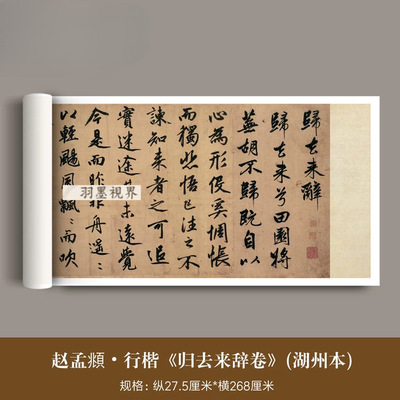 歸去来辭
歸去来兮田園將
蕪胡不歸既自以
心為形役奚惆悵
而獨悲悟已往之不
諫知来者之可追
實迷途未遠覺
今是而昨非舟遥〻
以輕颺風飄〻而吹
羽墨视界
赵孟頫·行楷《归去来辞卷》(湖州本)
规格：纵27.5厘米*横268厘米